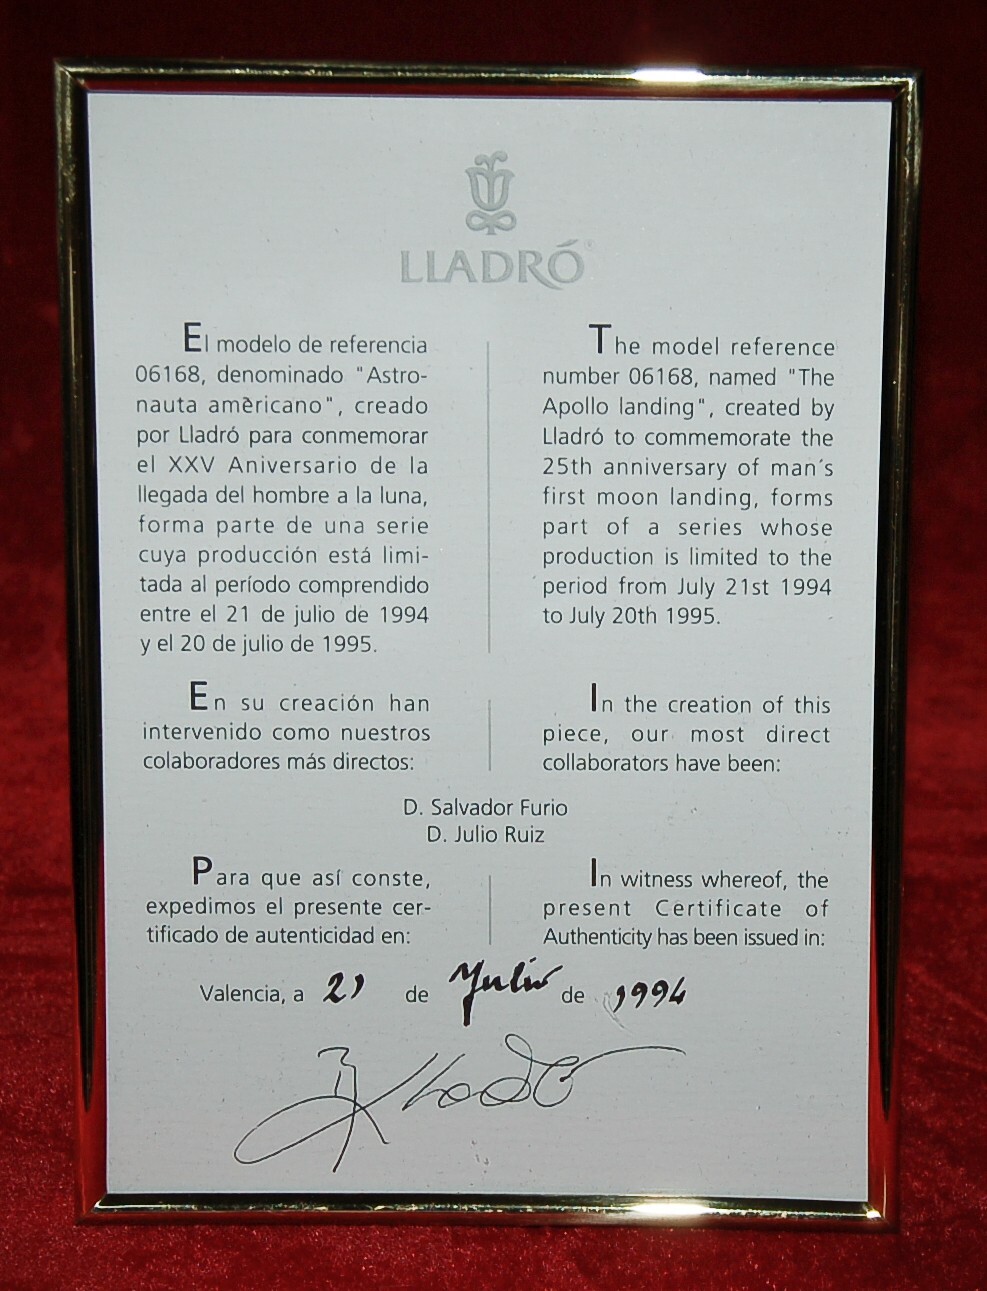 LLADRÓ
El modelo de referencia
06168, denominado "Astro-
nauta amèricano", creado
por Lladró para conmemorar
el XXV Aniversario de la
llegada del hombre a la luna,
forma parte de una serie
cuya producción está limi-
tada al período comprendido
entre el 21 de julio de 1994
y el 20 de julio de 1995.
The model reference
number 06168, named "The
Apollo landing", created by
Lladró to commemorate the
25th anniversary of man's
first moon landing, forms
part of a series whose
production is limited to the
period from July 21st 1994
to July 20th 1995.
En su creación han
intervenido como nuestros
colaboradores más directos:
In the creation of this
piece, our most direct
collaborators have been:
D. Salvador Furio
D. Julio Ruiz
Para que así conste,
expedimos el presente cer-
tificado de autenticidad en:
In witness whereof, the
present Certificate of
Authenticity has been issued in:
Valencia, a 21 de Julio de 1994